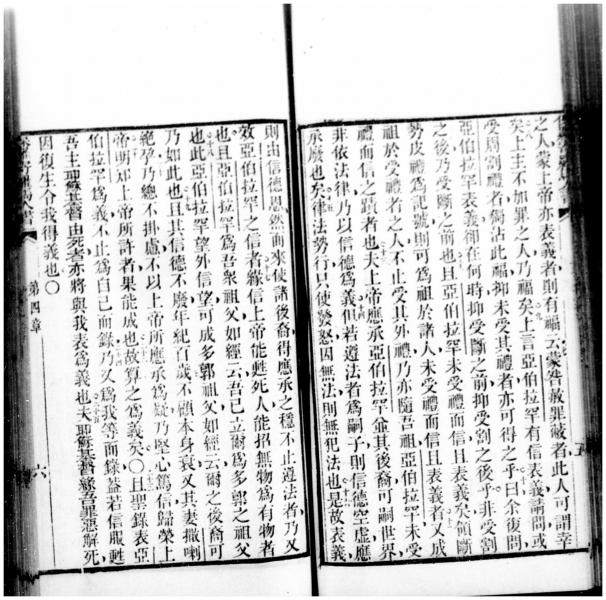 之人蒙上帝亦表義者則有福云蒙咎赦罪蔽者此人可謂幸
矣上主不加罪之人乃福矣上言亞伯拉罕有信表義請問或
受周割禮者獨沾此福抑未受其禮者亦可得之乎曰余復問
亞伯拉罕表義卻在何時抑受斷之前抑受割之後乎非受割
之後乃受斷之前也且亞伯拉罕未受禮而信且表義矣領斷
勢皮禮為記號則可為祖於諸人未受禮而信且表義者又成
祖於受禮者之人不止受其外禮乃亦隨吾祖亞伯拉罕未受
禮而信之蹟者也夫上帝應承亞伯拉罕僉其後裔可嗣世界
非依法律乃以信德為義但若遵法者為嗣子則信德空虛應
承廢也矣律法勢行只使發怒因無法則無犯法也是故表義
則由信德恩然而來使諸後裔得應承之穩不止遵法者乃又
效亞伯拉罕之信者緣信上帝能甦死人能招無物為有物者
也且亞伯拉罕為吾眾祖父如經云吾已立爾為多郭之祖父
也此亞伯拉罕望外信望可成多郭祖父如經云爾之後裔可
乃如此也且其信德不廢年紀百歲不顧本身衰又其妻撒喇
絕孕乃總不掛慮不以上帝所應承為疑乃堅心篤信歸榮上
帝明知上帝所許者果能成也故算之為義矣○且聖錄表亞
伯拉罕為義不止為自己而錄乃又為我等而錄蓋若信服甦
吾主耶穌基督由死者亦將與我表為義也夫耶穌基督緣吾罪惡解死
因復生令我得義也○
第四章
六